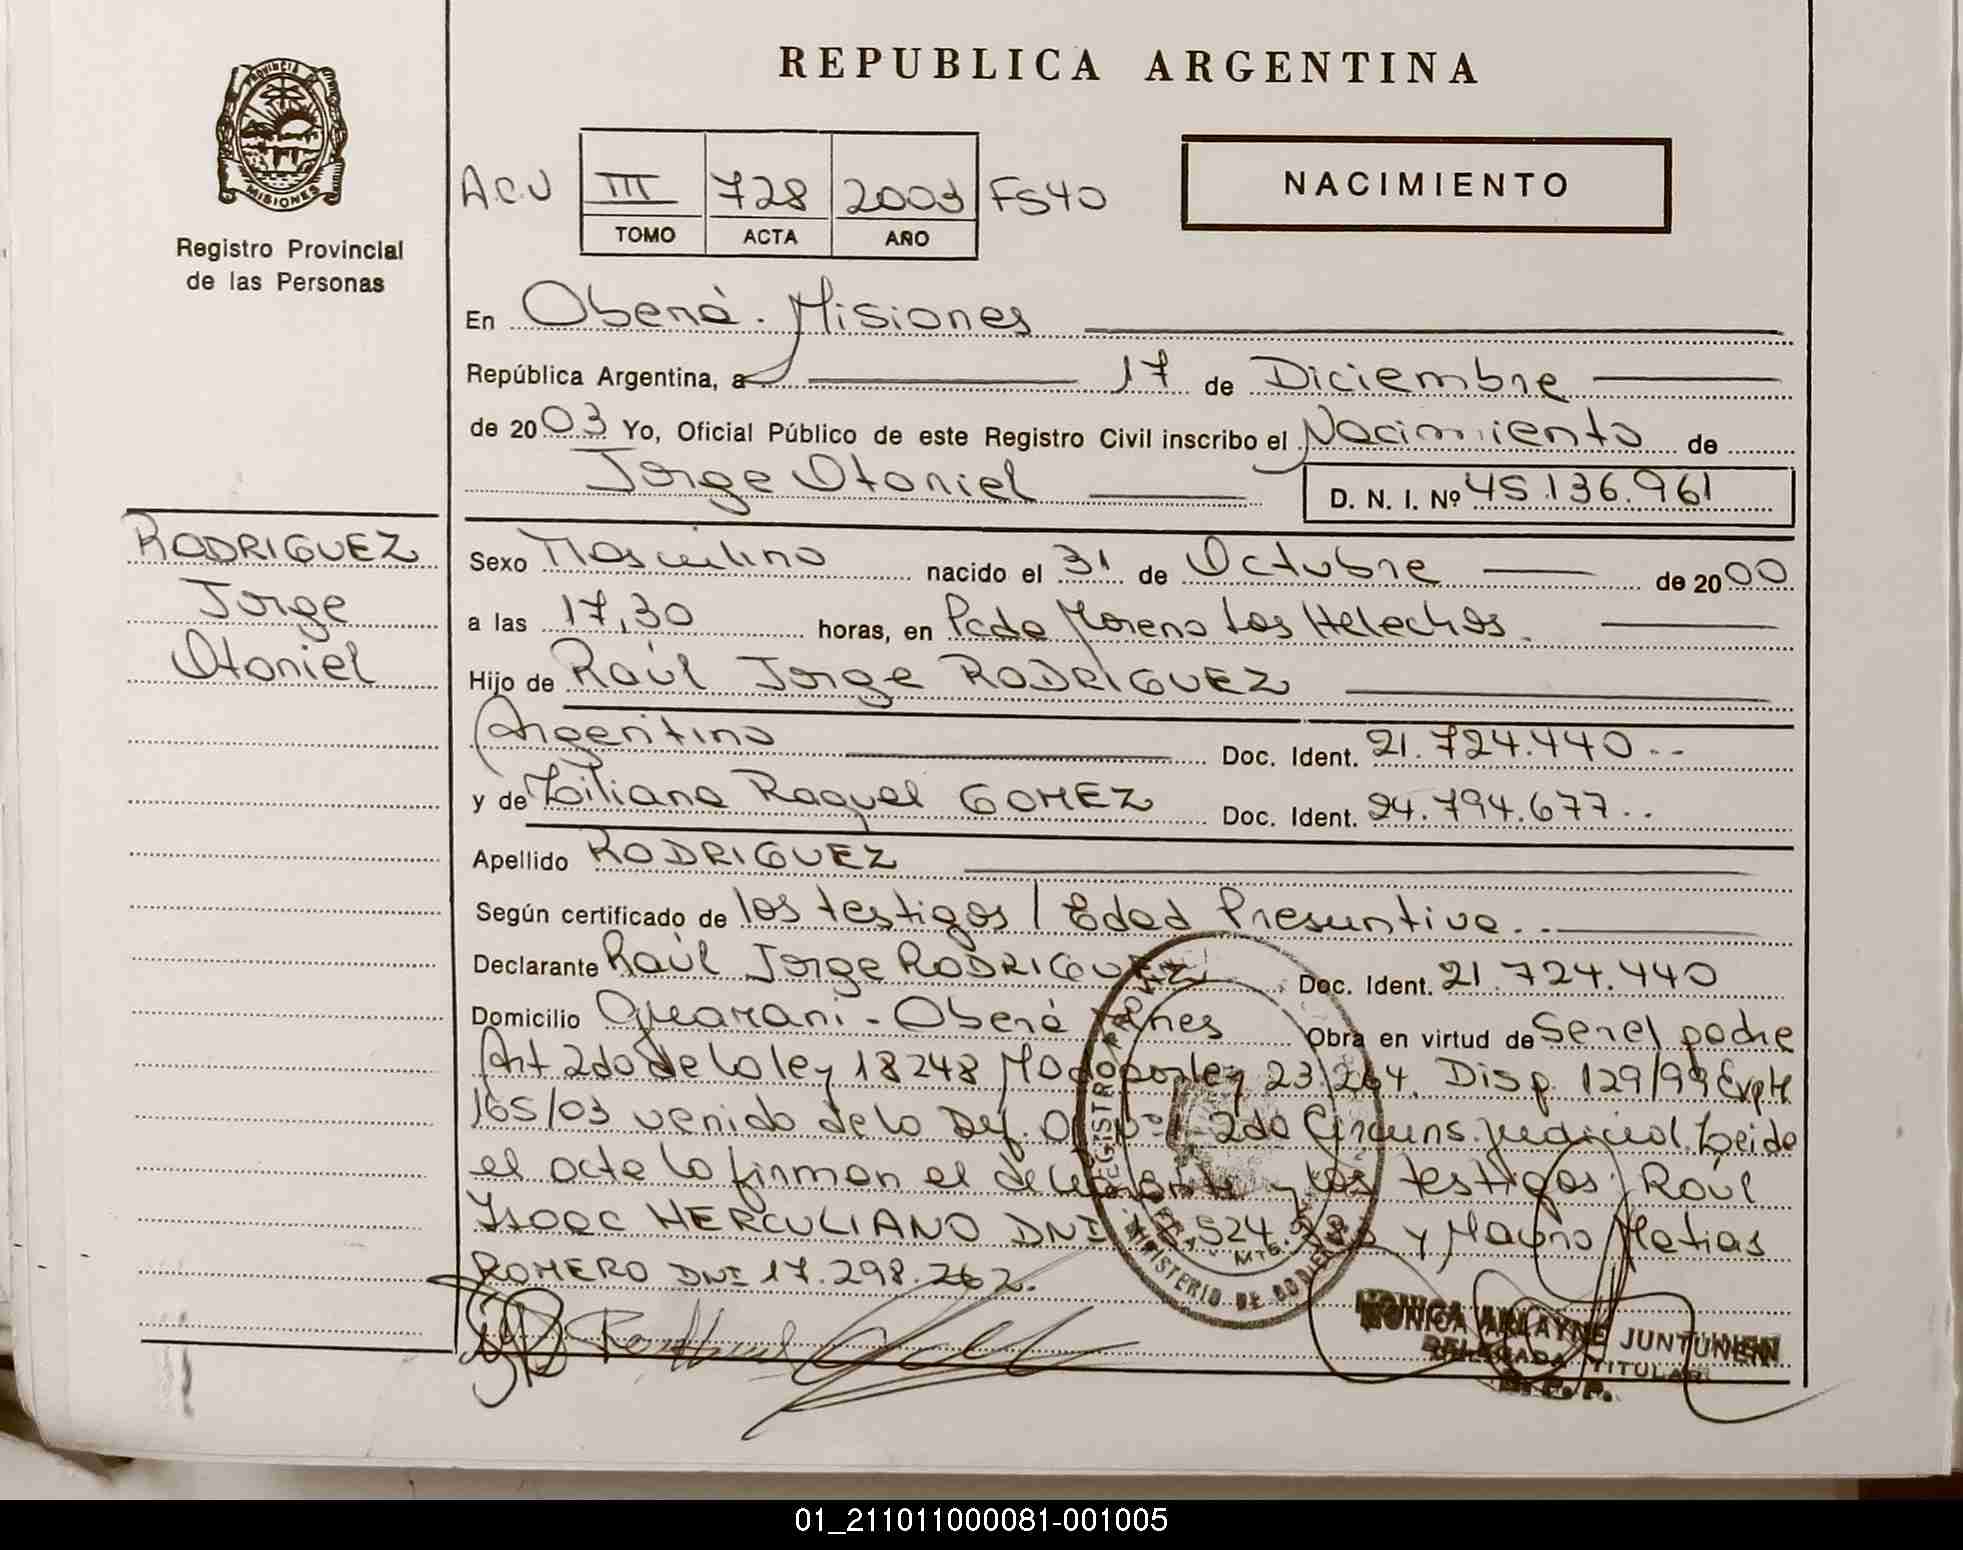 REPUBLICA ARGENTINA
PROVINCIA DE
MISIONES
Registro Provincial
de las Personas
A.C.U III 728 2003 F540
TOMO ACTA AÑO
NACIMIENTO
En Oberá. Misiones
República Argentina, a 17 de Diciembre
de 2003 Yo, Oficial Público de este Registro Civil inscribo el Nacimiento de
Jorge Otoniel D. N. I. Nº 45.136.961
RODRIGUEZ
Jorge
Otoniel
Sexo Masculino nacido el 31 de Octubre de 2000
a las 17,30 horas, en Pcdo Moreno Los Helechos.
Hijo de Raúl Jorge RODRIGUEZ
Argentino Doc. Ident. 21.724.440--
y de Liliana Raquel GOMEZ Doc. Ident. 24.794.677..
Apellido RODRIGUEZ
Según certificado de los testigos / Edad Presuntiva..
Declarante Raúl Jorge RODRIGUEZ Doc. Ident. 21.724.440
Domicilio Guarani - Oberá Mnes Obra en virtud de Ser el padre
Art 2do de la ley 18248 Modo por ley 23.264. Disp. 129/99 Expte
165/03 venido de la Def. Of. Nº1 2da Circuns. judicial. Leida
el acta la firman el declarante y los testigos: Raúl
Isaac HERCULIANO DNI 524 y Mauro Matias
ROMERO DNI 17.298.262.
MINISTERIO DE GOBIERNO
MONICA ARLAYNE JUNTUNEN
DELEGADA TITULAR
R. P. P.
01_211011000081-001005